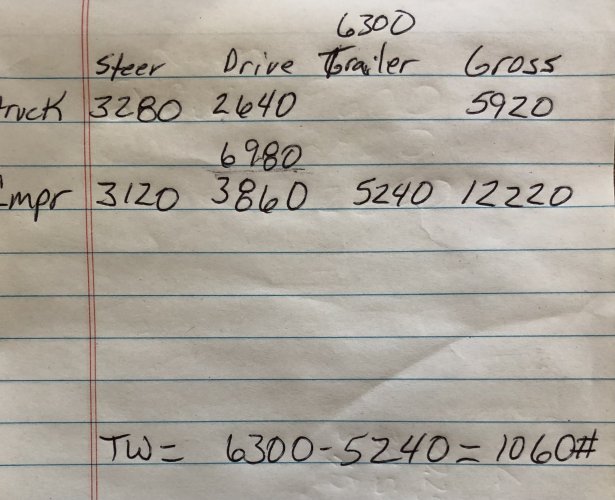 6300
Steer Drive Trailer Gross
ruck 3280 2640 5920
6980
mpr 3120 3860 5240 12220
TW = 6300-5240 = 1060#